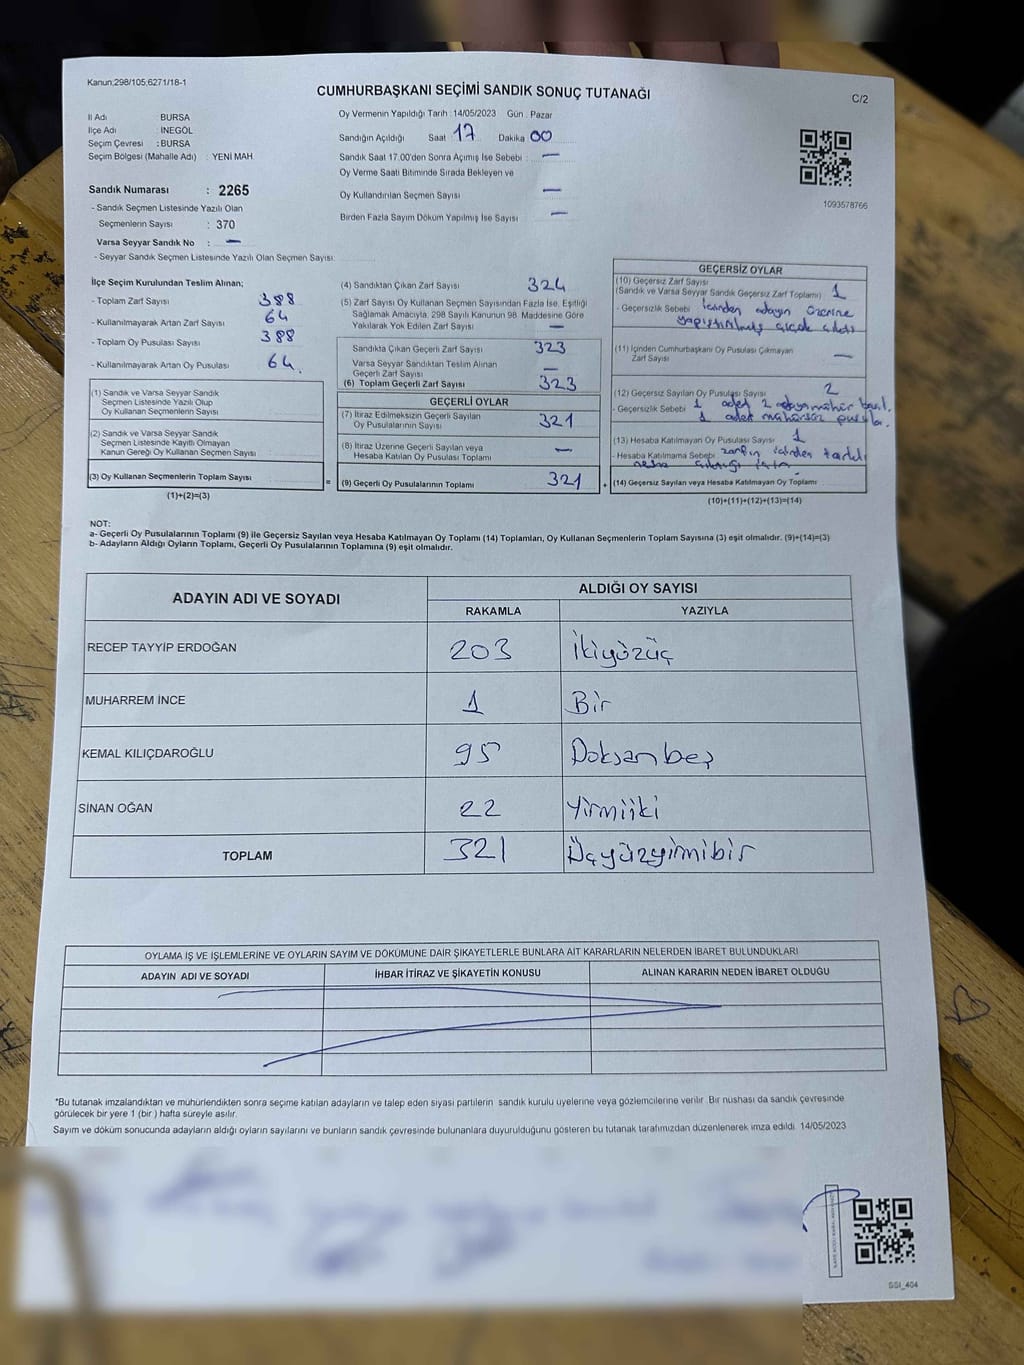 Kanun;298/105;6271/18-1
CUMHURBAŞKANI SEÇİMİ SANDIK SONUÇ TUTANAĞI
C/2
İl Adı BURSA
İlçe Adı : İNEGÖL
Seçim Çevresi : BURSA
Seçim Bölgesi (Mahalle Adı) : YENİ MAH.
Sandık Numarası : 2265
- Sandık Seçmen Listesinde Yazılı Olan
Seçmenlerin Sayısı : 370
Varsa Seyyar Sandık No : —
- Seyyar Sandık Seçmen Listesinde Yazılı Olan Seçmen Sayısı:
Oy Vermenin Yapıldığı Tarih : 14/05/2023 Gün : Pazar
Sandığın Açıldığı Saat 17 Dakika 00
Sandık Saat 17.00'den Sonra Açımış İse Sebebi : —
Oy Verme Saati Bitiminde Sırada Bekleyen ve
Oy Kullandırılan Seçmen Sayısı —
Birden Fazla Sayım Döküm Yapılmış İse Sayısı —
1093578766
İlçe Seçim Kurulundan Teslim Alınan;
- Toplam Zarf Sayısı 388
- Kullanılmayarak Artan Zarf Sayısı : 64
- Toplam Oy Pusulası Sayısı : 388
- Kullanılmayarak Artan Oy Pusulası : 64.
(1) Sandık ve Varsa Seyyar Sandık
Seçmen Listesinde Yazılı Olup
Oy Kullanan Seçmenlerin Sayısı :
(2) Sandık ve Varsa Seyyar Sandık
Seçmen Listesinde Kayıtlı Olmayan
Kanun Gereği Oy Kullanan Seçmen Sayısı :
(3) Oy Kullanan Seçmenlerin Toplam Sayısı :
(1)+(2)=(3)
=
(4) Sandıktan Çıkan Zarf Sayısı 324
(5) Zarf Sayısı Oy Kullanan Seçmen Sayısından Fazla İse, Eşitliği
Sağlamak Amacıyla, 298 Sayılı Kanunun 98. Maddesine Göre
Yakılarak Yok Edilen Zarf Sayısı —
Sandıkta Çıkan Geçerli Zarf Sayısı 323
Varsa Seyyar Sandıktan Teslim Alınan
Geçerli Zarf Sayısı —
(6) Toplam Geçerli Zarf Sayısı 323
GEÇERLİ OYLAR
(7) İtiraz Edilmeksizin Geçerli Sayılan
Oy Pusulalarının Sayısı : 321
(8) İtiraz Üzerine Geçerli Sayılan veya
Hesaba Katılan Oy Pusulası Toplamı —
(9) Geçerli Oy Pusulalarının Toplamı : 321
+
GEÇERSİZ OYLAR
(10) Geçersiz Zarf Sayısı
(Sandık ve Varsa Seyyar Sandık Geçersiz Zarf Toplamı) 1
- Geçersizlik Sebebi : İçinden adayın üzerine
yapıştırılmış çiçek çıktı
(11) İçinden Cumhurbaşkanı Oy Pusulası Çıkmayan
Zarf Sayısı —
(12) Geçersiz Sayılan Oy Pusulası Sayısı 2
- Geçersizlik Sebebi 1 adet 2 adaya mühür basıl.
1 adet mühürsüz pusula.
(13) Hesaba Katılmayan Oy Pusulası Sayısı 1
- Hesaba Katılmama Sebebi zarfın içinden farklı
(14) Geçersiz Sayılan veya Hesaba Katılmayan Oy Toplamı
(10)+(11)+(12)+(13)=(14)
NOT:
a- Geçerli Oy Pusulalarının Toplamı (9) ile Geçersiz Sayılan veya Hesaba Katılmayan Oy Toplamı (14) Toplamları, Oy Kullanan Seçmenlerin Toplam Sayısına (3) eşit olmalıdır. (9)+(14)=(3)
b- Adayların Aldığı Oyların Toplamı, Geçerli Oy Pusulalarının Toplamına (9) eşit olmalıdır.
ADAYIN ADI VE SOYADI
ALDIĞI OY SAYISI
RAKAMLA YAZIYLA
RECEP TAYYİP ERDOĞAN 203 İkiyüzüç
MUHARREM İNCE 1 Bir
KEMAL KILIÇDAROĞLU 95 Doksanbeş
SİNAN OĞAN 22 Yirmiiki
TOPLAM 321 Üçyüzyirmibir
OYLAMA İŞ VE İŞLEMLERİNE VE OYLARIN SAYIM VE DÖKÜMÜNE DAİR ŞİKAYETLERLE BUNLARA AİT KARARLARIN NELERDEN İBARET BULUNDUKLARI
ADAYIN ADI VE SOYADI İHBAR İTİRAZ VE ŞİKAYETİN KONUSU ALINAN KARARIN NEDEN İBARET OLDUĞU
*Bu tutanak imzalandıktan ve mühürlendikten sonra seçime katılan adayların ve talep eden siyasi partilerin sandık kurulu üyelerine veya gözlemcilerine verilir. Bir nüshası da sandık çevresinde
görülecek bir yere 1 (bir ) hafta süreyle asılır.
Sayım ve döküm sonucunda adayların aldığı oyların sayılarını ve bunların sandık çevresinde bulunanlara duyurulduğunu gösteren bu tutanak tarafımızdan düzenlenerek imza edildi. 14/05/2023
SSİ_404